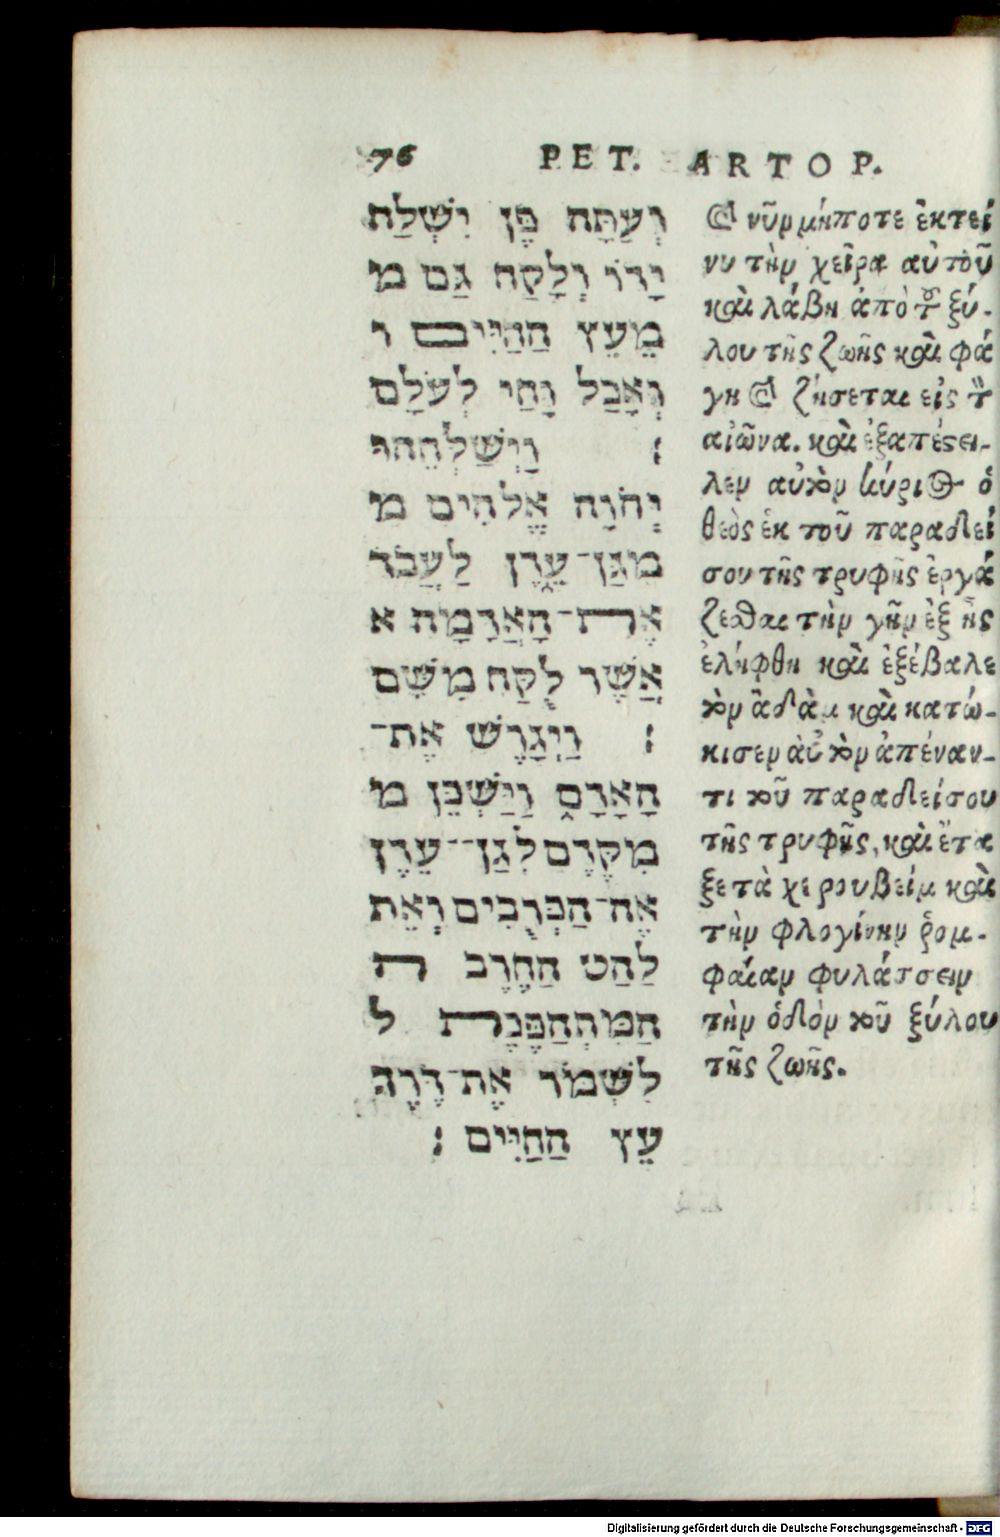 76 PET. ARTOP.
וְעַתָּה פֶּן יִשְׁלַח
יָדוֹ וְלָקַח גַּם מ
מֵעֵץ הַחַיִּים ו
וְאָכַל וָחַי לְעֹלָם
׃ וַיְשַׁלְּחֵהוּ
יְהֹוָה אֱלֹהִים מ
מִגַּן־עֵדֶן לַעֲבֹד
אֶת־הָאֲדָמָה א
אֲשֶׁר לֻקַּח מִשָּׁם
׃ וַיְגָרֶשׁ אֶת־
הָאָדָם וַיַּשְׁכֵּן מ
מִקֶּדֶם לְגַן־עֵדֶן
אֶת־הַכְּרֻבִים וְאֵת
לַהַט הַחֶרֶב ה
הַמִּתְהַפֶּכֶת ל
לִשְׁמֹר אֶת־דֶּרֶךְ
עֵץ הַחַיִּים ׃
καὶ νῦν μήποτε ἐκτεί
νῃ τὴν χεῖρα αὐτοῦ
καὶ λάβῃ ἀπὸ τοῦ ξύ-
λου τῆς ζωῆς καὶ φά
γῃ καὶ ζήσεται εἰς τὸν
αἰῶνα. καὶ ἐξαπέστει-
λεν αὐτὸν κύριος ὁ
θεὸς ἐκ τοῦ παραδεί
σου τῆς τρυφῆς ἐργά
ζεσθαι τὴν γῆν ἐξ ἧς
ἐλήφθη καὶ ἐξέβαλε
τὸν ἀδὰμ καὶ κατώ-
κισεν ἀυτὸν ἀπέναν-
τι τοῦ παραδείσου
τῆς τρυφῆς, καὶ ἔτα
ξε τὰ χερουβεὶμ καὶ
τὴν φλογίνην ῥομ-
φαίαν φυλάτσειν
τὴν ὁδὸν τοῦ ξύλου
τῆς ζωῆς.
Digitalisierung gefördert durch die Deutsche Forschungsgemeinschaft - DFG